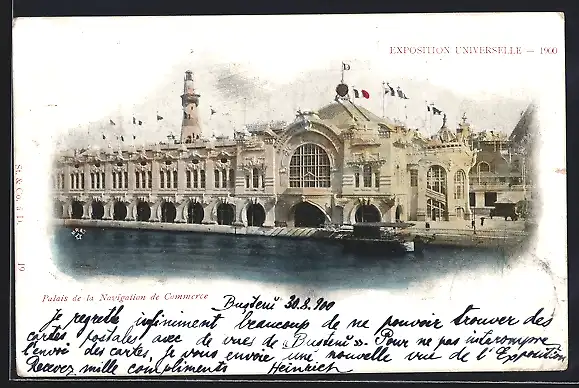 EXPOSITION UNIVERSELLE — 1900
St. & Co., à D.
19
Palais de la Navigation de Commerce
Busteni 30.8.900
Je regrette infiniment beaucoup de ne pouvoir trouver des
cartes postales avec de vues de „Busteni". Pour ne pas interompre
l'envoi des cartes, je vous envoie une nouvelle vue de l'Exposition
Recevez mille compliments Heinrich